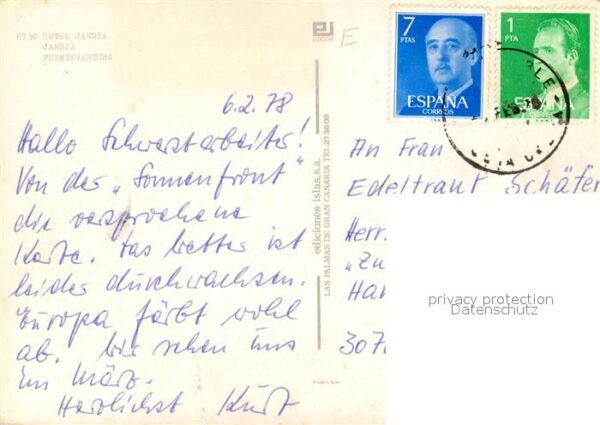 6730 HOTEL JANDIA
JANDIA
FUERTEVENTURA
E
6.2.78
Hallo Schwerstarbeiter!
Von der „Sonnenfront"
die versprochene
Karte. Das Wetter ist
leider durchwachsen.
Europa färbt wohl
ab. Wir sehen uns
im März.
Herzlichst Kurt
ediciones islas,s.a.
LAS PALMAS DE GRAN CANARIA TEL.273609
7
PTAS
ESPAÑA
CORREOS
1
PTA
An Frau
Edeltraut Schäfer
Herr
„Zu
Han
307
privacy protection
Datenschutz